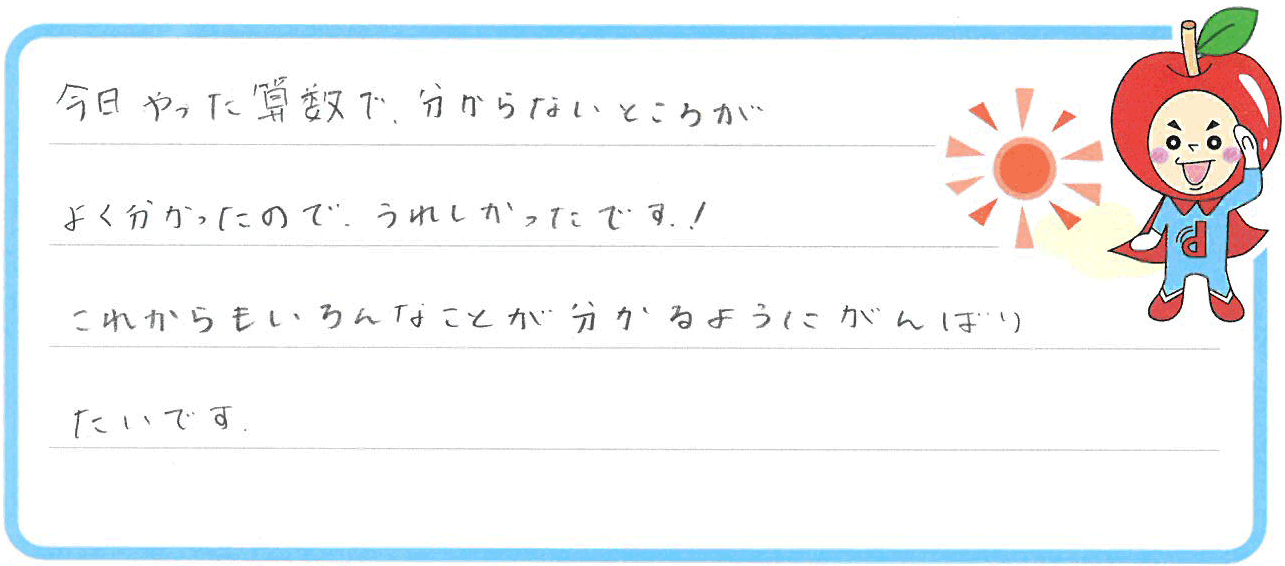 今日やった算数で、分からないところが
よく分かったので、うれしかったです!
これからもいろんなことが分かるようにがんばり
たいです.